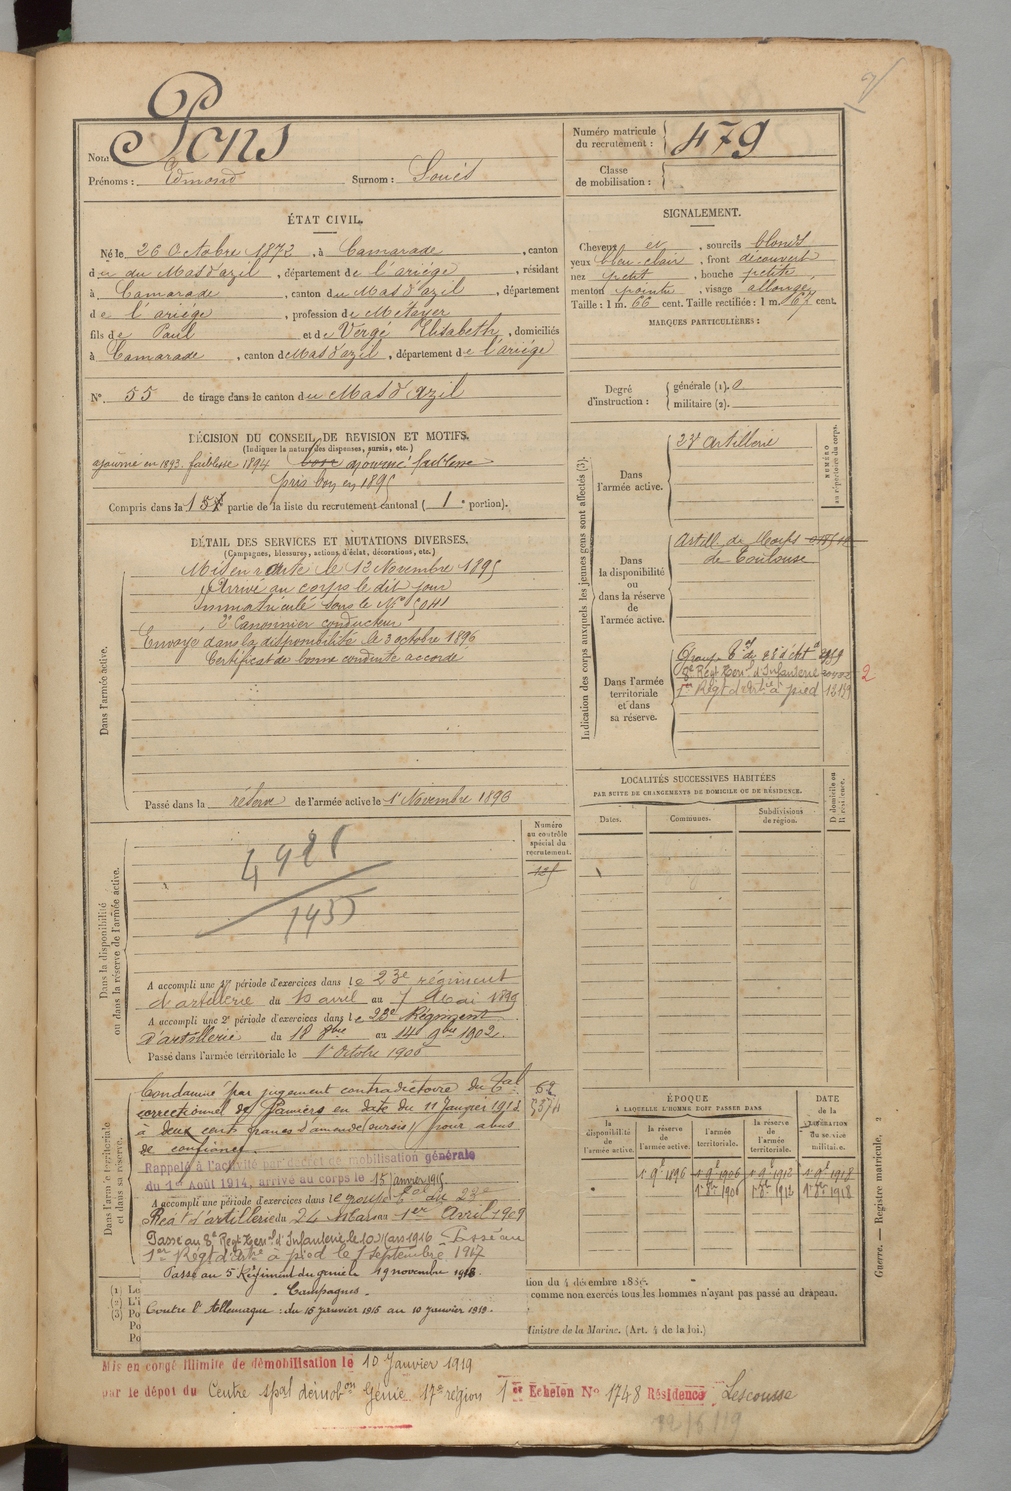 Nom: Pons
Prénoms: Edmond Surnom: Louis
Numéro matricule du recrutement: 479
Classe de mobilisation:
ÉTAT CIVIL.
Né le 26 Octobre 1872, à Camarade, canton
du du Mas d'azil, département de l'ariége, résidant
à Camarade, canton du Mas d'azil, département
de l'ariége, profession de Métayer
fils de Paul et de Vergé Elisabeth, domiciliés
à Camarade, canton de Mas d'azil, département de l'ariége
N° 55 de tirage dans le canton du Mas d'azil
SIGNALEMENT.
Cheveux et, sourcils blonds
yeux bleu-clair, front découvert
nez petit, bouche petite
menton pointu, visage allongé
Taille: 1 m. 66 cent. Taille rectifiée: 1 m. 67 cent.
MARQUES PARTICULIÈRES:
Degré d'instruction: générale (1). 0
militaire (2).
DÉCISION DU CONSEIL DE REVISION ET MOTIFS.
(Indiquer la nature des dispenses, sursis, etc.)
ajourné en 1893. faiblesse 1894 bon ajourné faiblesse
pris bon en 1895
Compris dans la 1re partie de la liste du recrutement cantonal (1e portion).
DÉTAIL DES SERVICES ET MUTATIONS DIVERSES.
(Campagnes, blessures, actions d'éclat, décorations, etc.)
Dans l'armée active.
Mis en route le 13 Novembre 1895
Arrivé au corps le dit jour
Immatriculé sous le N°
2e Canonnier conducteur
Envoyé dans la disponibilité le 3 octobre 1896
Certificat de bonne conduite accordé
Passé dans la réserve de l'armée active le 1er Novembre 1896
Indication des corps auxquels les jeunes gens sont affectés (3).
NUMÉRO au répertoire du corps.
Dans l'armée active.
23e Artillerie
Dans la disponibilité ou dans la réserve de l'armée active.
Artill. de Corps
de Toulouse
Dans l'armée territoriale et dans sa réserve.
8e Regt Terral d'Infanterie
1er Régt d'Artie à pied 13139
2
LOCALITÉS SUCCESSIVES HABITÉES
PAR SUITE DE CHANGEMENTS DE DOMICILE OU DE RÉSIDENCE.
Dates. Communes. Subdivisions de région. D domicile ou R résidence.
Dans la disponibilité ou dans la réserve de l'armée active.
Numéro au contrôle spécial du recrutement.
1435
A accompli une 1re période d'exercices dans le 23e régiment
d'artillerie du 10 avril au 7 Mai 1899
A accompli une 2e période d'exercices dans le 23e Régiment
d'artillerie du 18 8bre au 14 9bre 1902.
Passé dans l'armée territoriale le 1er Octobre 1906
Dans l'armée territoriale et dans sa réserve.
Condamné par jugement contradictoire du Tal
correctionnel de Pamiers en date du 11 Janvier 1912
à deux cents francs d'amende (sursis) pour abus
de confiance.
Rappelé à l'activité par décret de mobilisation générale
du 1er Août 1914, arrivé au corps le 15 janvier 1915.
A accompli une période d'exercices dans le groupe du 23e
Regt d'artillerie du 24 Mars au 1er Avril 1909
Passé au 8e Regt Terral d'Infanterie le 10 Mars 1916 - Passé au
1er Régt d'Artie à pied le 1 septembre 1917
Passé au 5 Régiment du génie le 19 novembre 1918.
- Campagnes -
Contre l'Allemagne: du 15 janvier 1915 au 10 janvier 1919.
ÉPOQUE
À LAQUELLE L'HOMME DOIT PASSER DANS
la disponibilité de l'armée active. la réserve de l'armée active. l'armée territoriale. la réserve de l'armée territoriale.
DATE de la LIBÉRATION du service militaire.
1er 9bre 1896 1er 9bre 1906 1er 9bre 1912 1er 9bre 1918
1er 8bre 1906 1er 8bre 1912 1er 8bre 1918
Guerre. — Registre matricule. 2
comme non exercés tous les hommes n'ayant pas passé au drapeau.
Ministre de la Marine. (Art. 4 de la loi.)
Mis en congé illimité de démobilisation le 10 Janvier 1919
par le dépôt du Centre spal démobon Génie 17e région 1er Echelon N° 1748 Résidence Lescousse